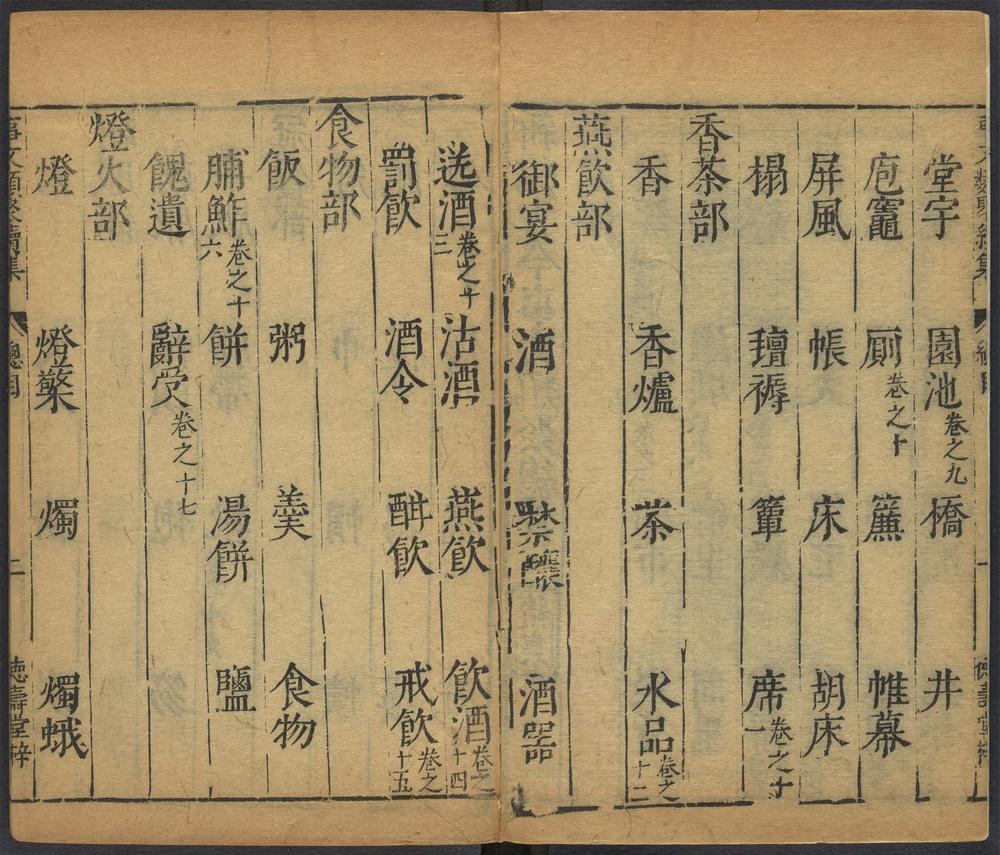 堂宇 園池卷之九 橋 井
庖竈 厠卷之十 簾 帷幕
屏風 帳 床 胡床
榻 氊褥 簟 席卷之十一
香茶部
香 香爐 茶 水品卷之十二
燕飲部
御宴 酒 禁釀 酒器
送酒卷之十三 沽酒 燕飲 飲酒卷之十四
罰飲 酒令 酣飲 戒飲卷之十五
食物部
飯 粥 羹 食物
脯鮓卷之十六 餅 湯餅 鹽
餽遺 辭受卷之十七
燈火部
燈 燈檠 燭 燭蛾
事文類聚續集 總目 二 德壽堂梓